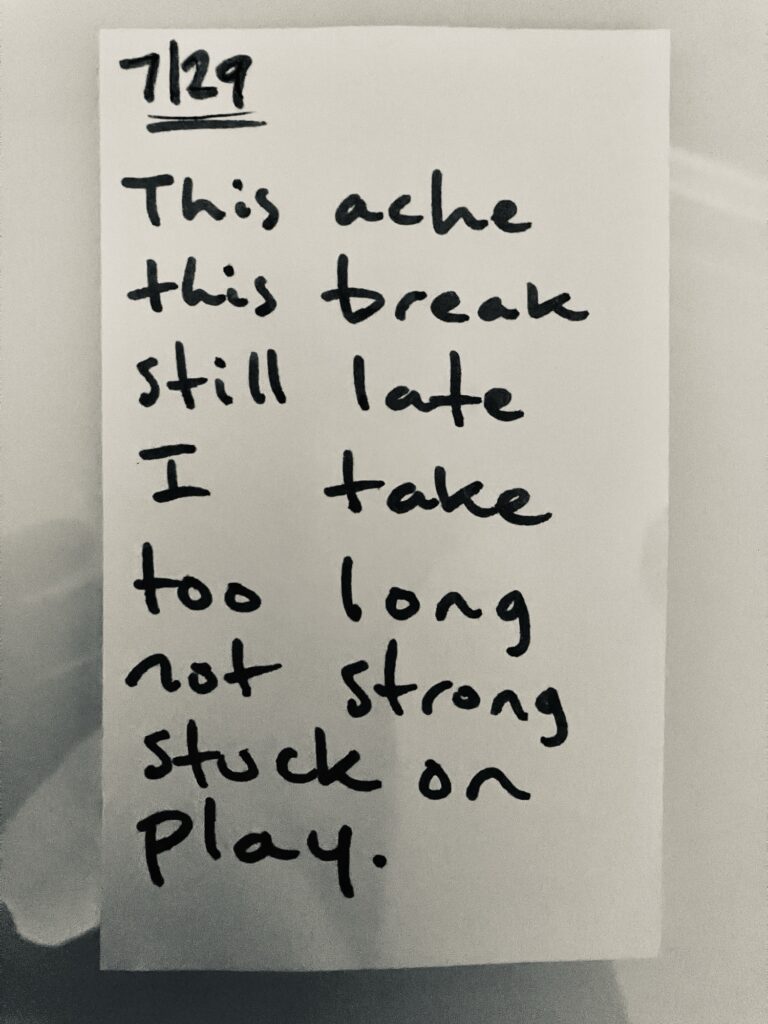 7/29
This ache
this break
still late
I take
too long
not strong
stuck on
play.